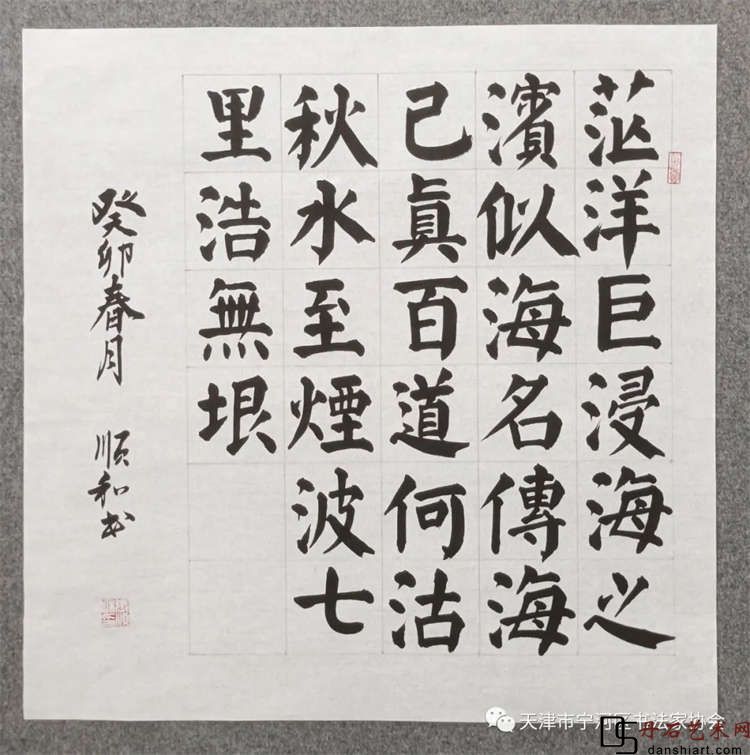 茫洋巨浸海之
濱似海名傳海
己眞百道何沽
秋水至煙波七
里浩無垠
癸卯春月 順和书
天津市宁河区书法家协会
丹石艺术网
danshiart.com